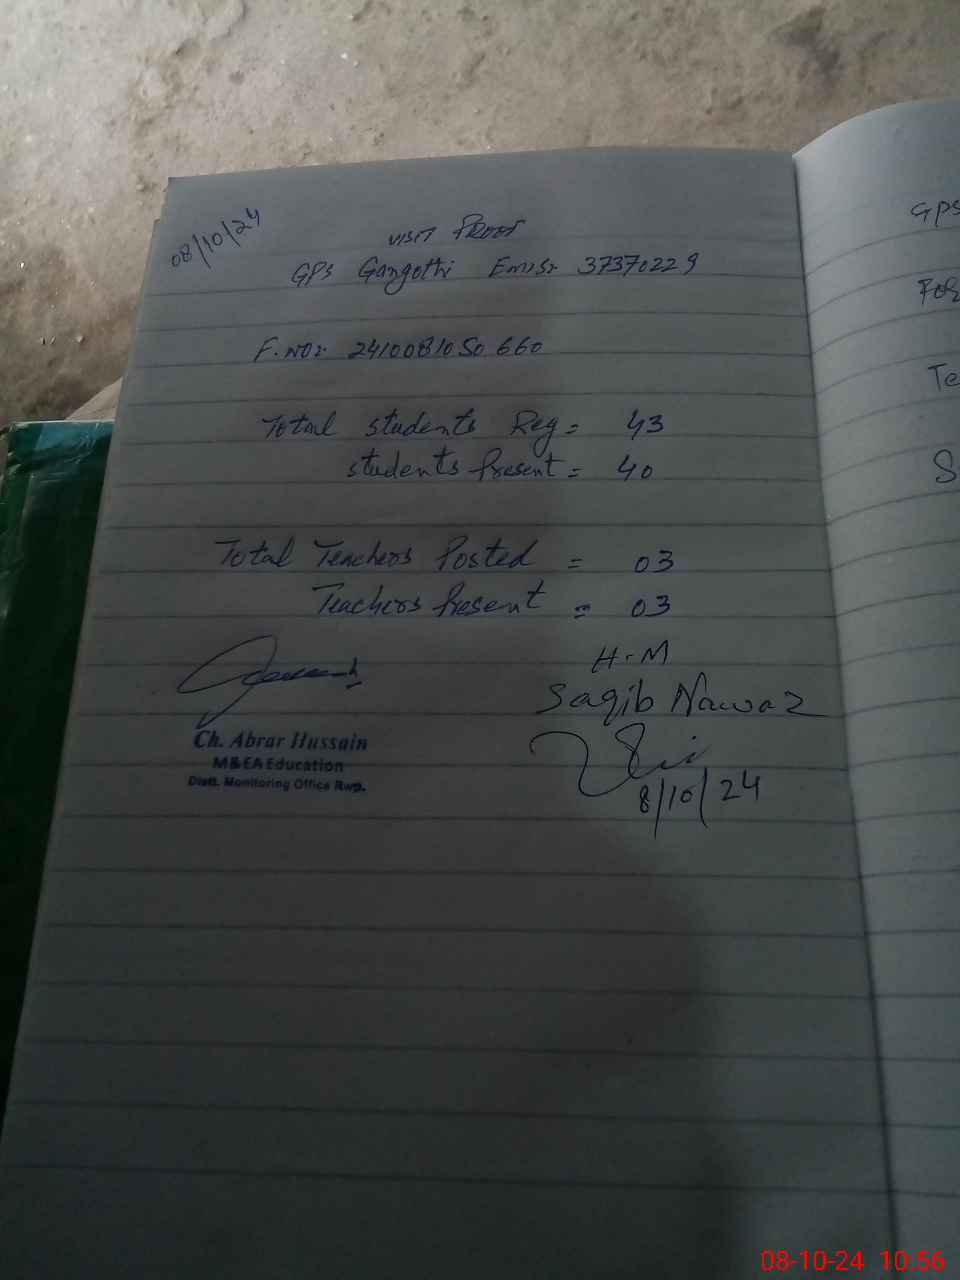 08/10/24
VISIT PROOF
GPS Gangothi Emis: 37370229
F.NO: 241008105066​0
Total students Reg = 43
students Present = 40
Total Teachers Posted = 03
Teachers Present = 03
H-M
Saqib Nawaz
8/10/24
Ch. Abrar Hussain
M&EA Education
Distt. Monitoring Office Rwp.
GPS
Te
S
08-10-24 10:56